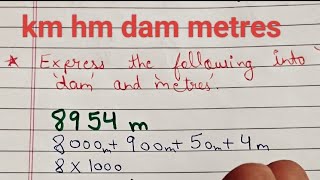 km hm dam metres
* Express the following into
'dam' and metres'.
8954 m
8000m + 900m + 50m + 4m
8 x 1000